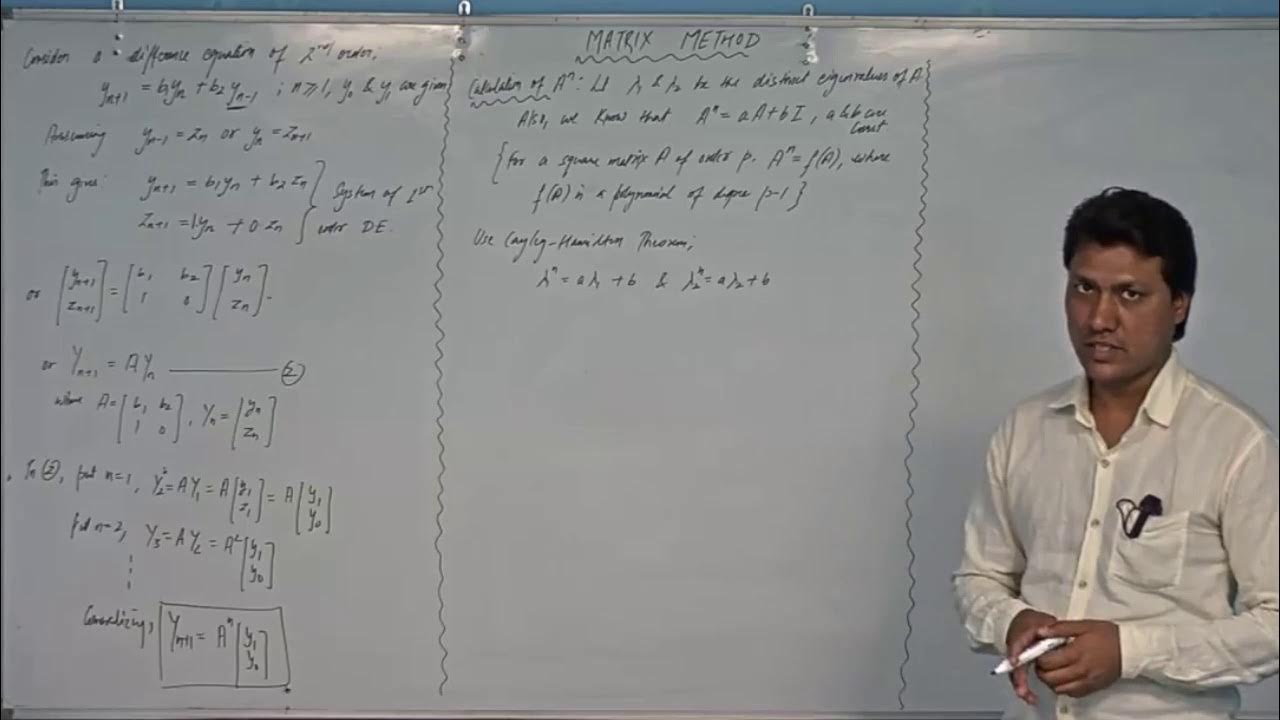 MATRIX METHOD
Consider a difference equation of 2nd order,
yₙ₊₁ = b₁yₙ + b₂yₙ₋₁ ; n≥1, y₀ & y₁ are given
Assuming yₙ₋₁ = zₙ or yₙ = zₙ₊₁
This gives: yₙ₊₁ = b₁yₙ + b₂zₙ } System of 1st
zₙ₊₁ = 1.yₙ + 0.zₙ } order DE.
or [yₙ₊₁ zₙ₊₁] = [b₁ b₂ 1 0] [yₙ zₙ].
or Yₙ₊₁ = AYₙ ——— ②
where A = [b₁ b₂ 1 0], Yₙ = [yₙ zₙ]
In ②, put n=1, Y₂ = AY₁ = A[y₁ z₁] = A[y₁ y₀]
put n=2, Y₃ = AY₂ = A²[y₁ y₀]
Generalizing, Yₙ₊₁ = Aⁿ[y₁ y₀]
Calculation of Aⁿ: Let λ₁ & λ₂ be the distinct eigenvalues of A
Also, we know that Aⁿ = aA + bI, a & b are
const
{for a square matrix A of order p. Aⁿ = f(A), where
f(A) is a polynomial of degree p-1}
Use Cayley-Hamilton Theorem;
λⁿ = aλ₁ + b & λ₂ⁿ = aλ₂ + b